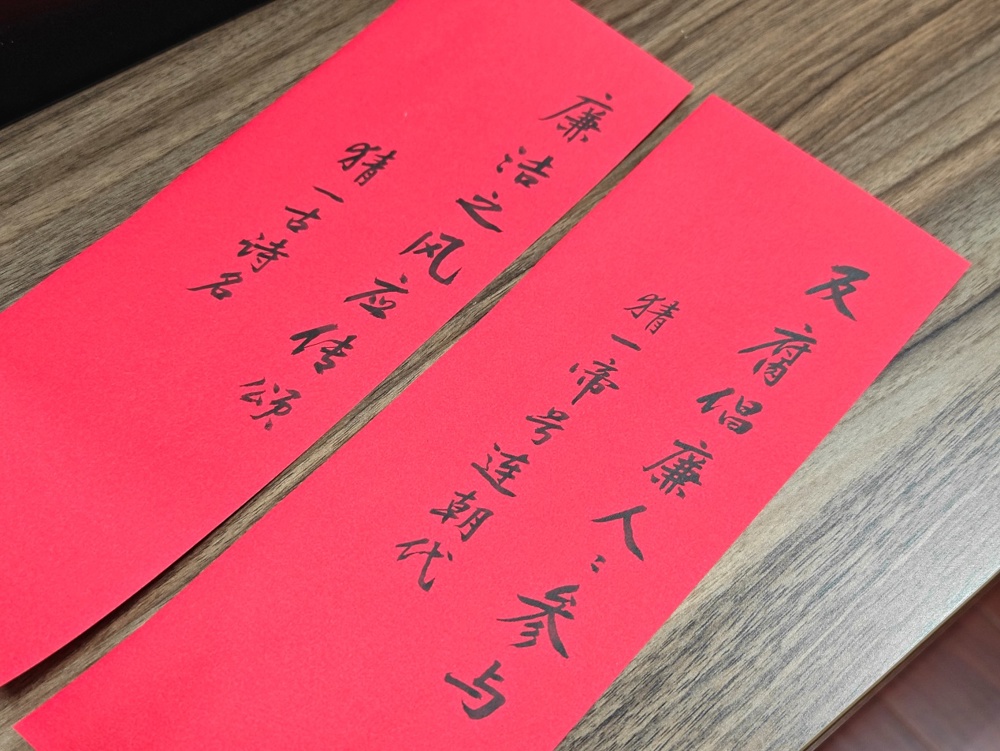 反腐倡廉人々参与
猜一帝号连朝代
廉洁之风应传颂
猜一古诗名